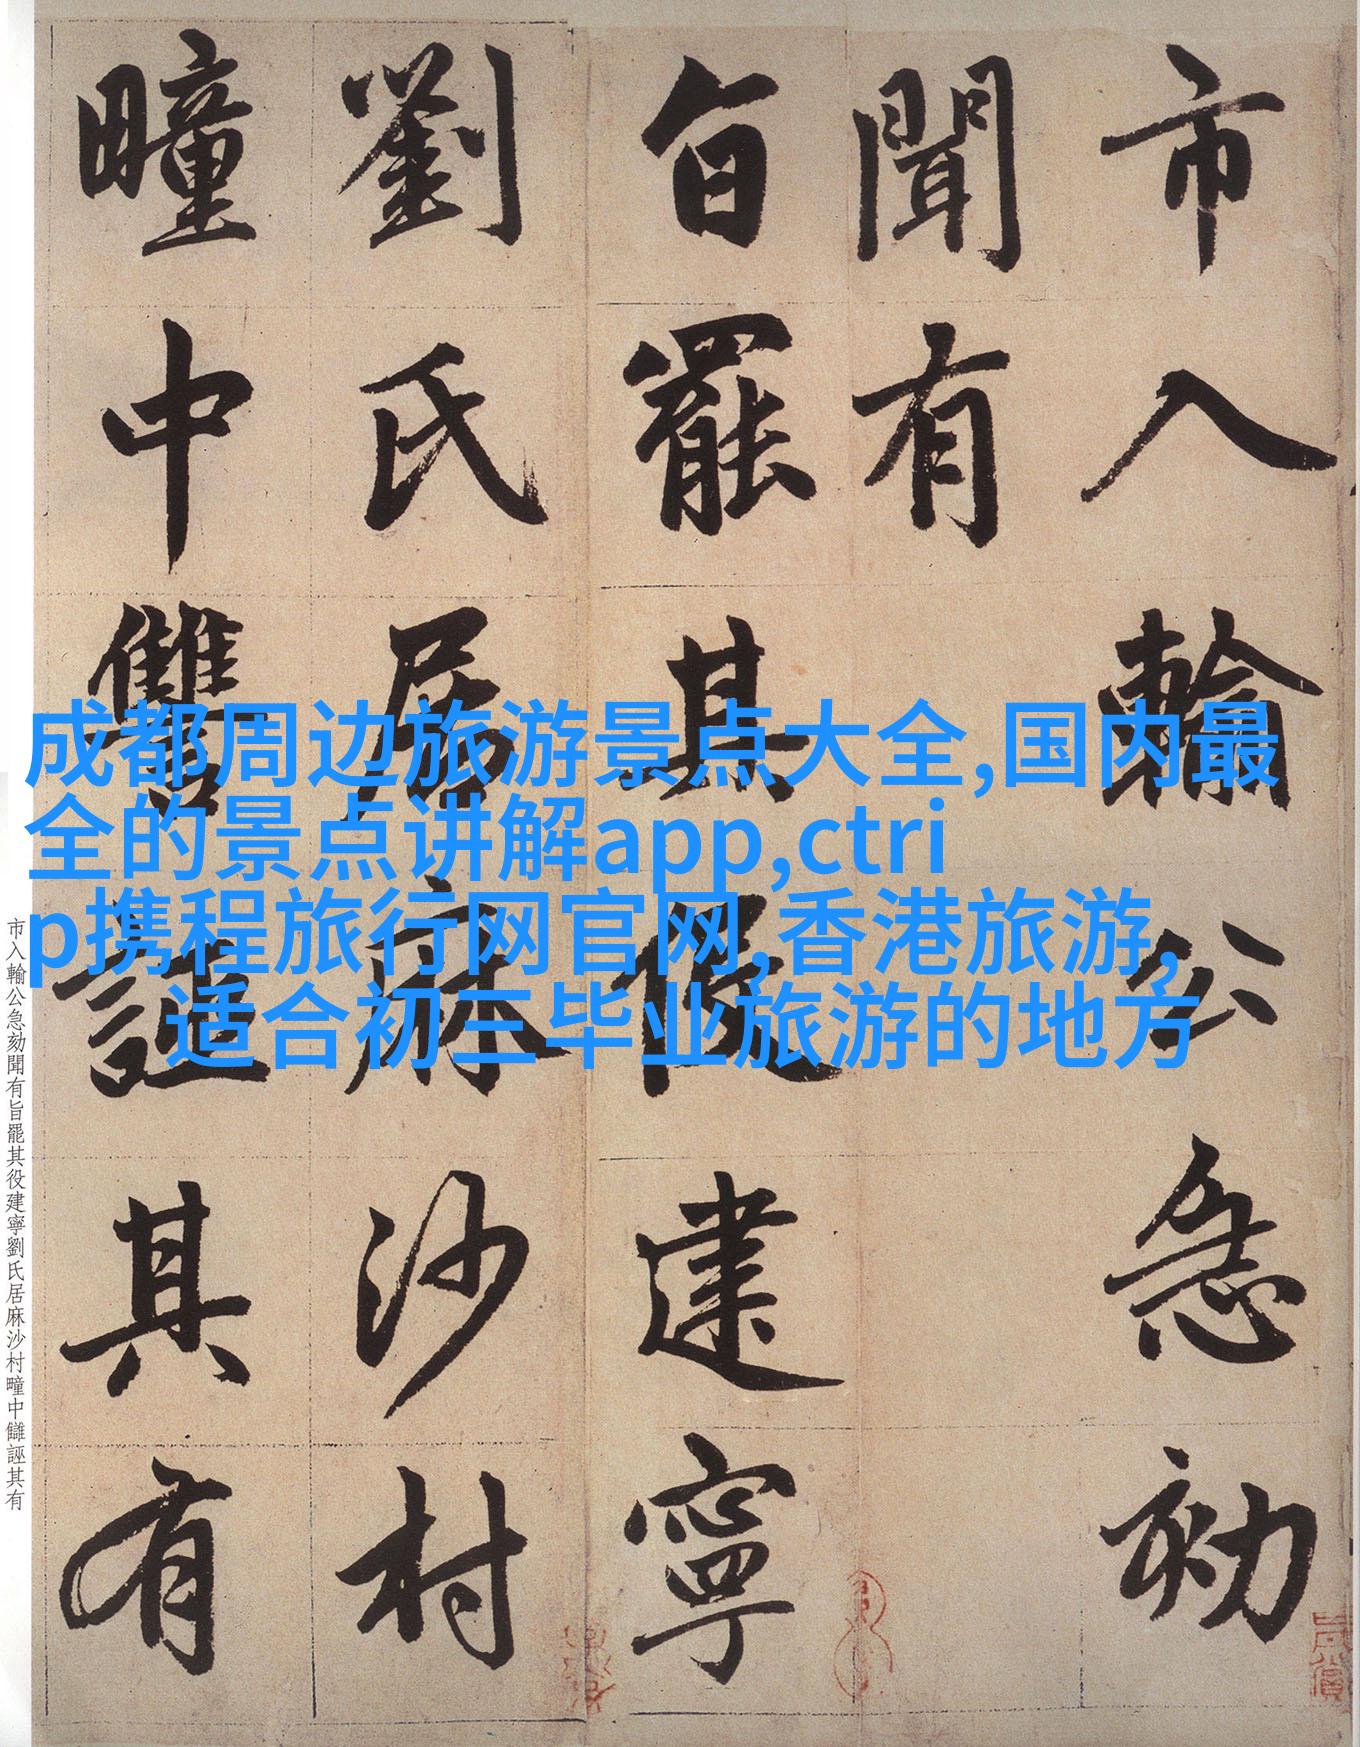 市入輸公急効
聞有
旨罷其役建寧
劉氏居麻沙村
疃中讎誣其有
成都周边旅游景点大全,国内最
全的景点讲解app,ctri
p携程旅行网官网,香港旅游,
适合初三毕业旅游的地方
市入輸公急効聞有旨罷其役建寧劉氏居麻沙村疃中讎誣其有